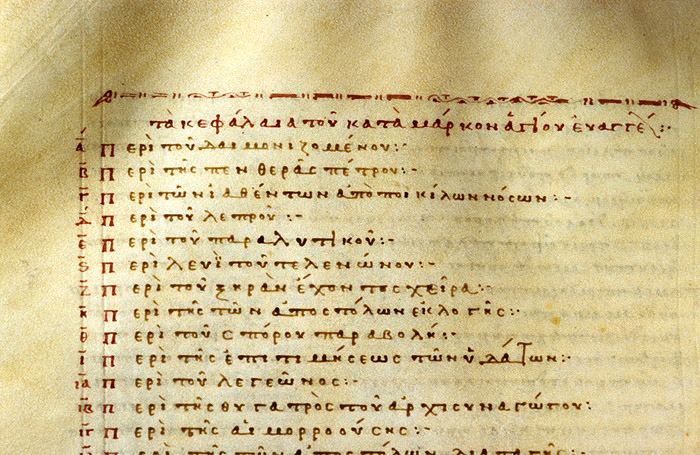 τὰ κεφάλαια τοῦ κατὰ μάρκον ἁγίου εὐαγγε
α περὶ τοῦ δαιμονιζομένου:-
β περὶ τῆς πενθερᾶς πέτρου:-
γ περὶ τῶν ἰαθέντων ἀπὸ ποικίλων νόσων:-
δ περὶ τοῦ λεπροῦ:-
ε περὶ τοῦ παραλυτικοῦ:-
ϛ περὶ λευῒ τοῦ τελενώνου:-
ζ περὶ τοῦ ξηρὰν ἔχοντης χεῖρα:-
η περὶ τῆς τῶν ἀποστόλων ἐκλογῆς:-
θ περὶ τοῦ σπόρου παραβολή:-
ι περὶ τῆς ἐπιτιμήσεως τῶν ὑδάτων:-
ια περὶ τοῦ λεγεῶνος:-
ιβ περὶ τῆς θυγατρὸς τοῦ ἀρχισυναγώγου:
ιγ περὶ τῆς αἱμορροούσης:-
περὶ τῆς τῶν ἀποστόλων διαταγῆς:-